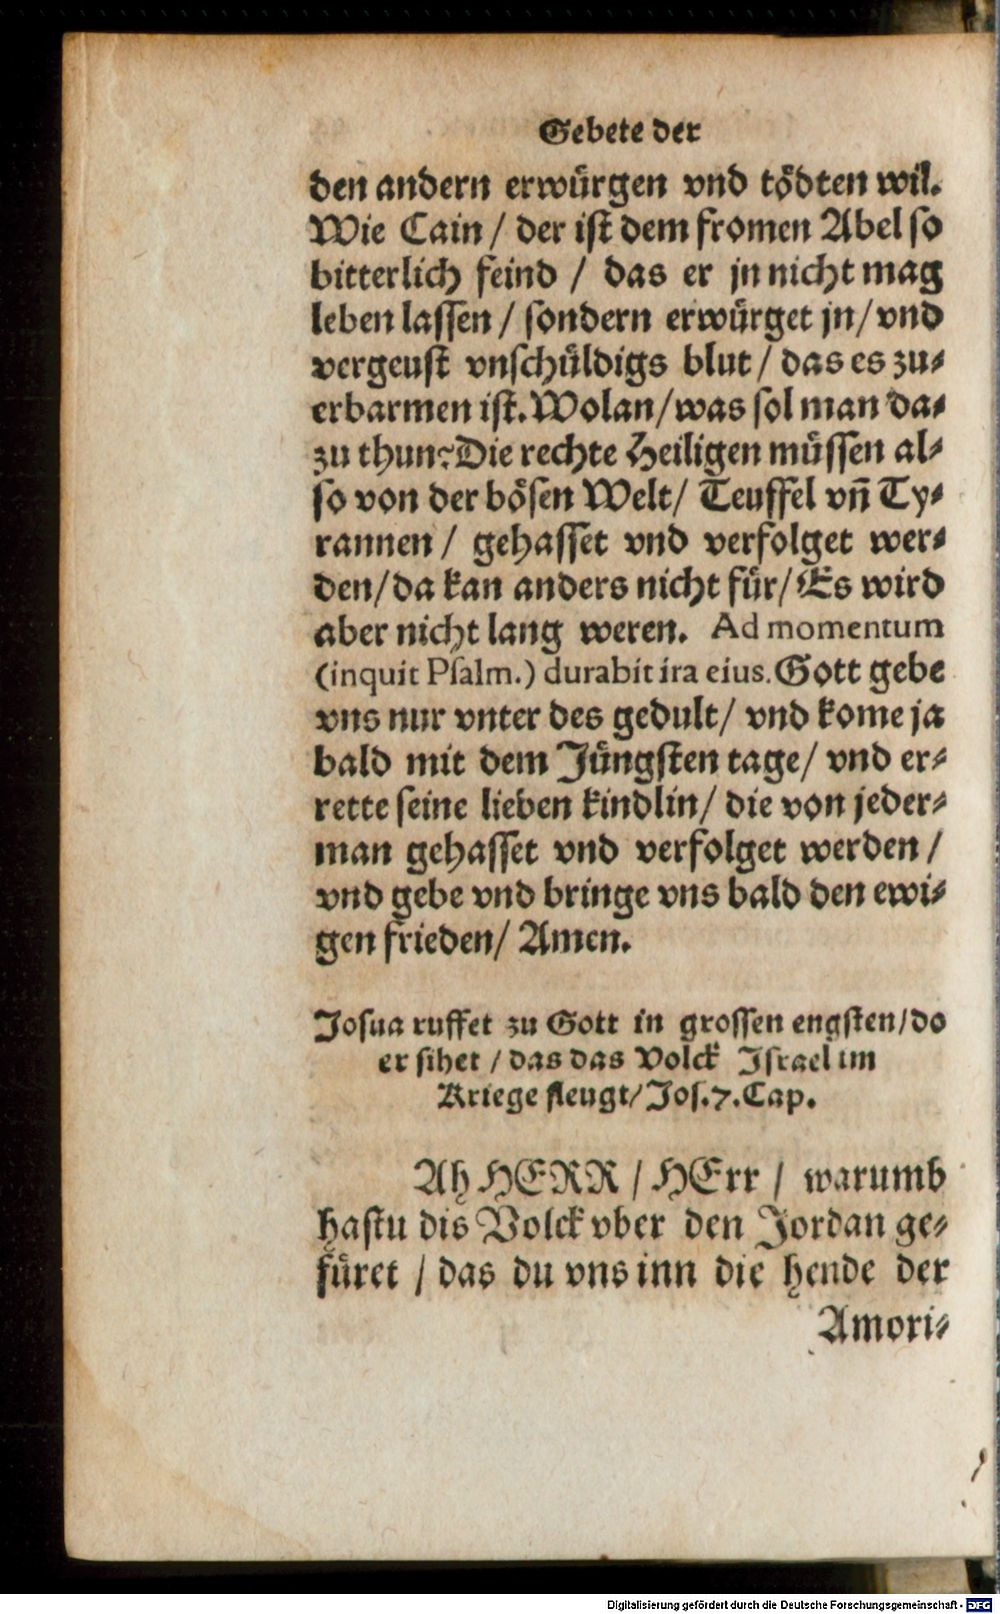 Gebete der
den andern erwürgen vnd tödten wil.
Wie Cain / der ist dem fromen Abel so
bitterlich feind / das er jn nicht mag
leben lassen / sondern erwürget jn / vnd
vergeust vnschüldigs blut / das es zu-
erbarmen ist. Wolan / was sol man da-
zu thun? Die rechte Heiligen müssen al-
so von der bösen Welt / Teuffel vn̄ Ty-
rannen / gehasset vnd verfolget wer-
den / da kan anders nicht für / Es wird
aber nicht lang weren. Ad momentum
(inquit Psalm.) durabit ira eius. Gott gebe
vns nur vnter des gedult / vnd kome ja
bald mit dem Jüngsten tage / vnd er-
rette seine lieben kindlin / die von jeder-
man gehasset vnd verfolget werden /
vnd gebe vnd bringe vns bald den ewi-
gen frieden / Amen.
Josua ruffet zu Gott in grossen engsten / do
er sihet / das das Volck Israel im
Kriege fleugt / Jos. 7. Cap.
Ah HERR / HErr / warumb
hastu dis Volck vber den Jordan ge-
füret / das du vns inn die hende der
Amori-
Digitalisierung gefördert durch die Deutsche Forschungsgemeinschaft - DFG